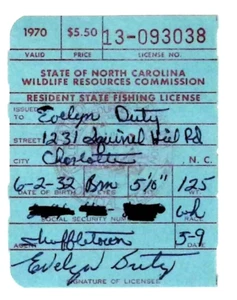 1970 $5.50 13-093038
VALID PRICE LICENSE NO.
STATE OF NORTH CAROLINA
WILDLIFE RESOURCES COMMISSION
RESIDENT STATE FISHING LICENSE
ISSUED TO Evelyn Duty
STREET 1231 Squirrel Hill Rd
CITY Charlotte N. C.
6-2-32 Brn 5'10" 125
DATE OF BIRTH
SOCIAL SECURITY NUMBER wh RACE
AGENT Shuffletown 5-9 DATE
Evelyn Duty
SIGNATURE OF LICENSEE